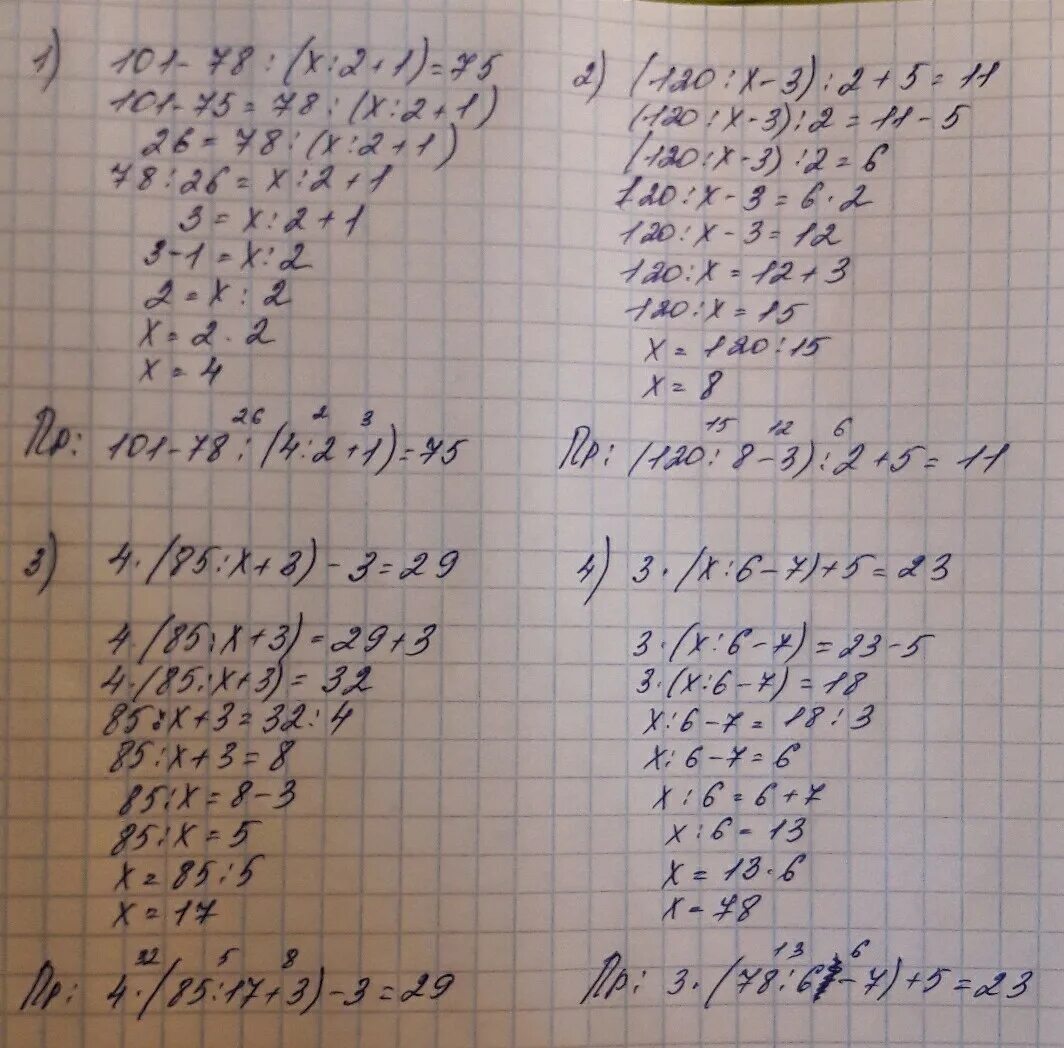 1) 101 - 78 : (x : 2 + 1) = 75
101 - 75 = 78 : (x : 2 + 1)
26 = 78 : (x : 2 + 1)
78 : 26 = x : 2 + 1
3 = x : 2 + 1
3 - 1 = x : 2
2 = x : 2
x = 2 · 2
x = 4
26 2 3
Пр: 101 - 78 : (4 : 2 + 1) = 75
2) (120 : x - 3) : 2 + 5 = 11
(120 : x - 3) : 2 = 11 - 5
(120 : x - 3) : 2 = 6
120 : x - 3 = 6 · 2
120 : x - 3 = 12
120 : x = 12 + 3
120 : x = 15
x = 120 : 15
x = 8
15 12 6
Пр: (120 : 8 - 3) : 2 + 5 = 11
3) 4 · (85 : x + 3) - 3 = 29
4 · (85 : x + 3) = 29 + 3
4 · (85 : x + 3) = 32
85 : x + 3 = 32 : 4
85 : x + 3 = 8
85 : x = 8 - 3
85 : x = 5
x = 85 : 5
x = 17
32 5 8
Пр: 4 · (85 : 17 + 3) - 3 = 29
4) 3 · (x : 6 - 7) + 5 = 23
3 · (x : 6 - 7) = 23 - 5
3 · (x : 6 - 7) = 18
x : 6 - 7 = 18 : 3
x : 6 - 7 = 6
x : 6 = 6 + 7
x : 6 = 13
x = 13 · 6
x = 78
13 6
Пр: 3 · (78 : 6 - 7) + 5 = 23